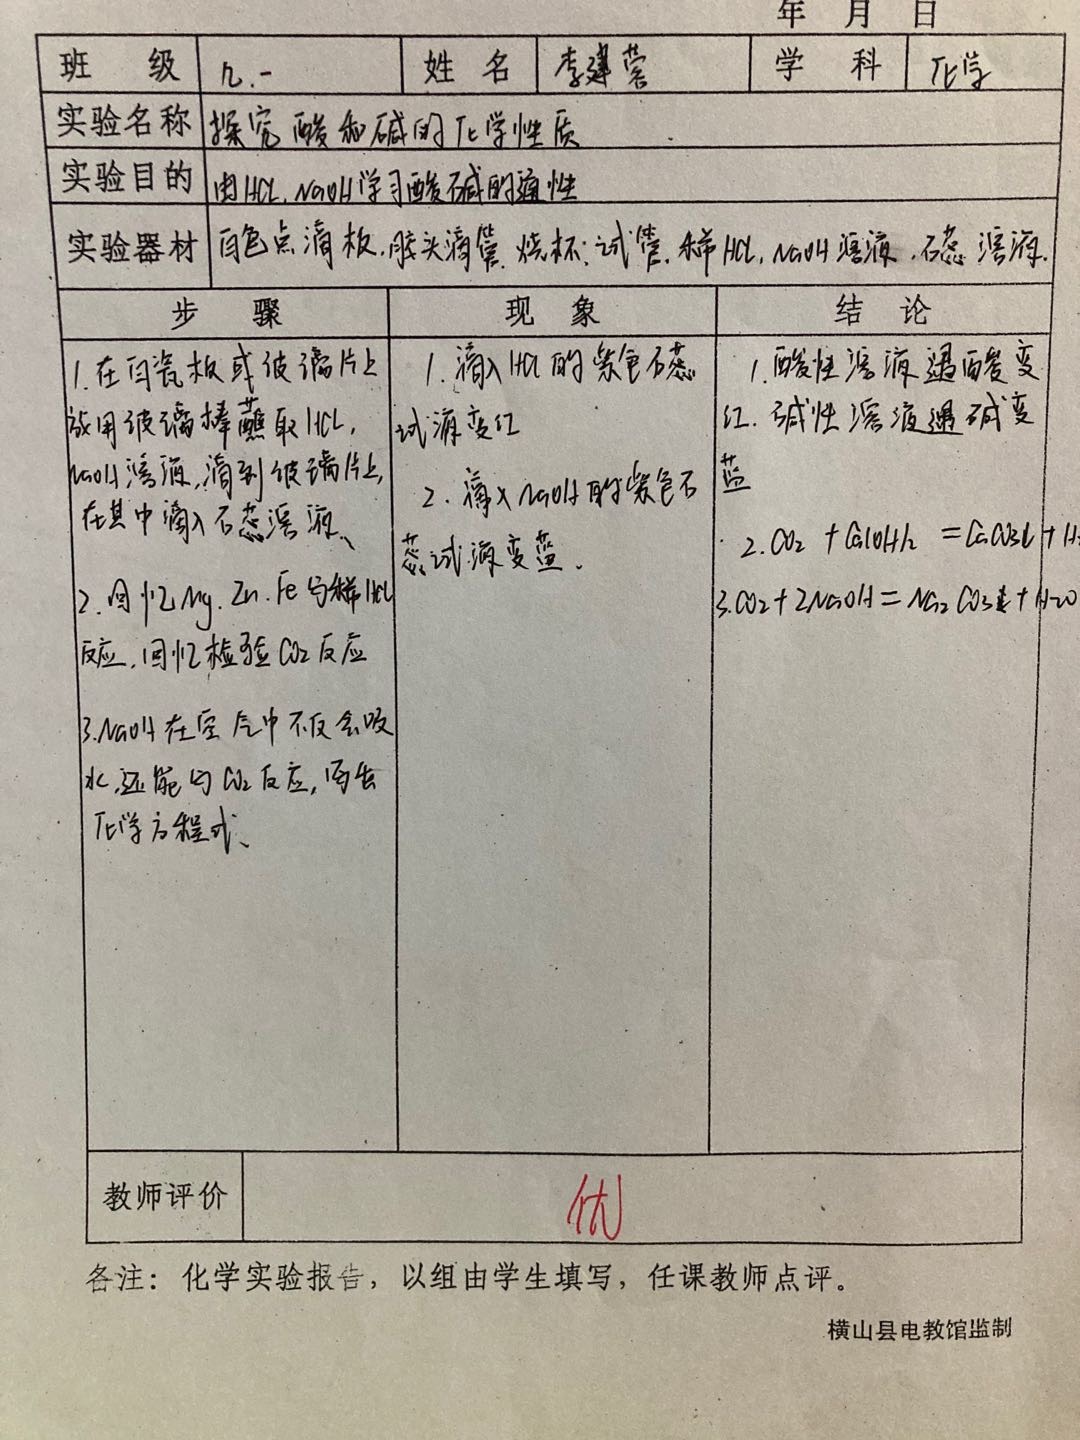 年 月 日
班 级 九.一 姓 名 李建莹 学 科 化学
实验名称 探究酸和碱的化学性质
实验目的 由HCl、NaOH学习酸碱的通性
实验器材 白色点滴板、胶头滴管、烧杯、试管、稀HCl、NaOH溶液、石蕊溶液.
步 骤 现 象 结 论
1.在白瓷板或玻璃片上
放用玻璃棒蘸取HCl,
NaOH溶液,滴到玻璃片上,
在其中滴入石蕊溶液、
2.回忆Mg.Zn.Fe与稀HCl
反应,回忆检验CO2反应
3.NaOH在空气中不仅会吸
水,还能与CO2反应,写出
化学方程式、
1.滴入HCl的紫色石蕊
试液变红
2.滴入NaOH的紫色石
蕊试液变蓝.
1.酸性溶液遇酸变
红.碱性溶液遇碱变
蓝
2.CO2+Ca(OH)2=CaCO3↓+H
3.CO2+2NaOH=Na2CO3+H2O
教师评价 优
各注:化学实验报告,以组由学生填写,任课教师点评。
横山县电教馆监制